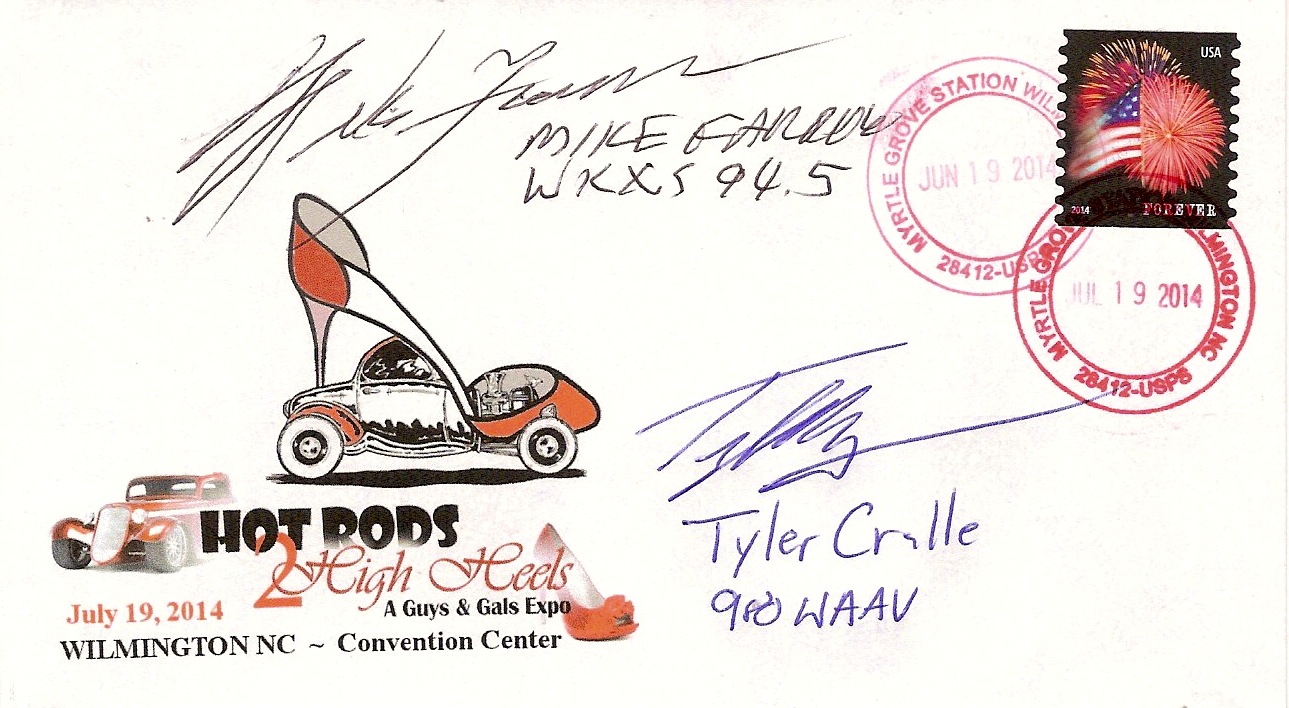 MIKE FARROW
WKXS 94.5
USA
2014
FOREVER
MYRTLE GROVE STATION WIL
JUN 19 2014
28412-USPS
MYRTLE GRO
LMINGTON NC
JUL 19 2014
28412-USPS
Tyler Cralle
980 WAAV
HOT RODS
2 High Heels
A Guys & Gals Expo
July 19, 2014
WILMINGTON NC ~ Convention Center